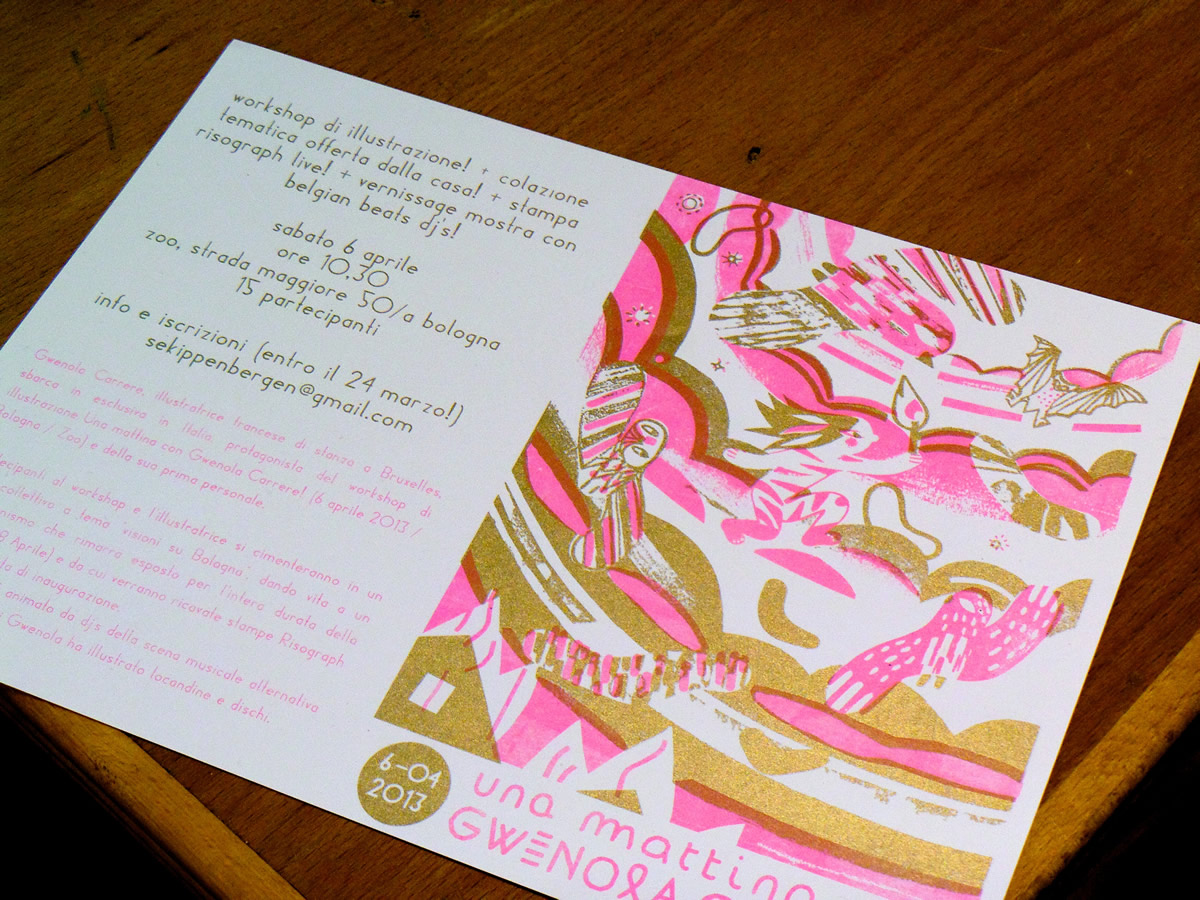 workshop di illustrazione! + colazione
tematica offerta dalla casa! + stampa
risograph live! + vernissage mostra con
belgian beats dj's!
sabato 6 aprile
ore 10.30
zoo, strada maggiore 50/a bologna
15 partecipanti
info e iscrizioni (entro il 24 marzo!)
sekippenbergen@gmail.com
Gwenola Carrere, illustratrice francese di stanza a Bruxelles,
sbarca in esclusiva in Italia, protagonista del workshop di
illustrazione Una mattina con Gwenola Carrere! (6 aprile 2013 /
Bologna / Zoo) e della sua prima personale.
al workshop e l'illustratrice si cimenteranno in un
collettivo a tema "visioni su Bologna", dando vita a un
che rimarrà esposto per l'intera durata della
Aprile) e da cui verranno ricavate stampe Risograph
di inaugurazione.
animata da dj's della scena musicale alternativa
Gwenola ha illustrato locandine e dischi.
6-04
2013
una mattina
GWENOLA